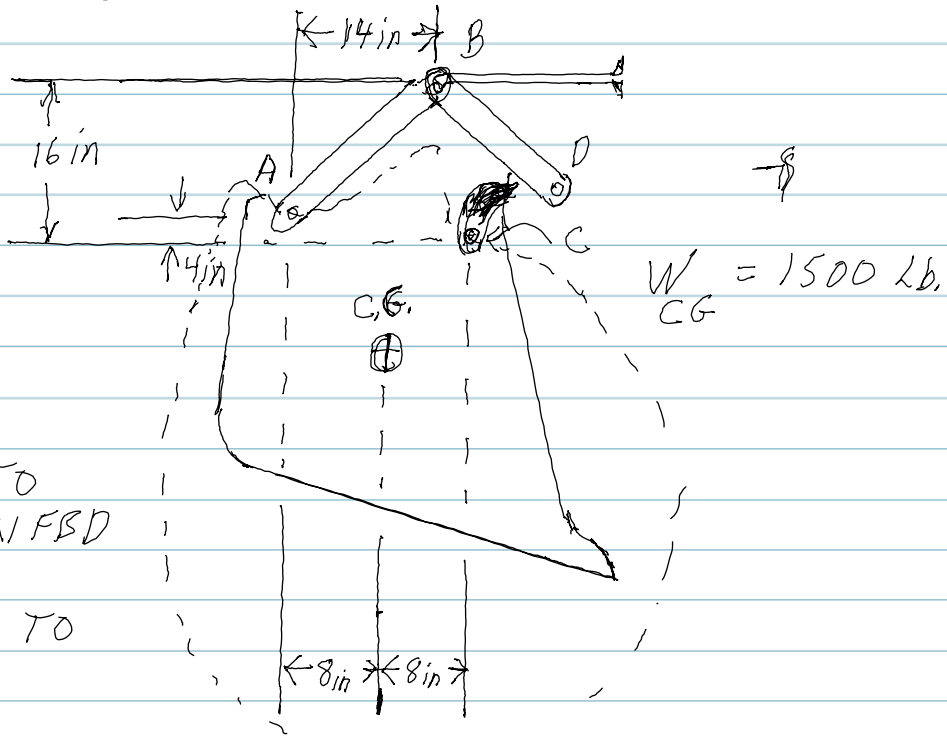 14in
B
16in
A
D
4in
C
C.G.
W = 1500 Lb.
CG
TO
FBD
TO
8in
8in